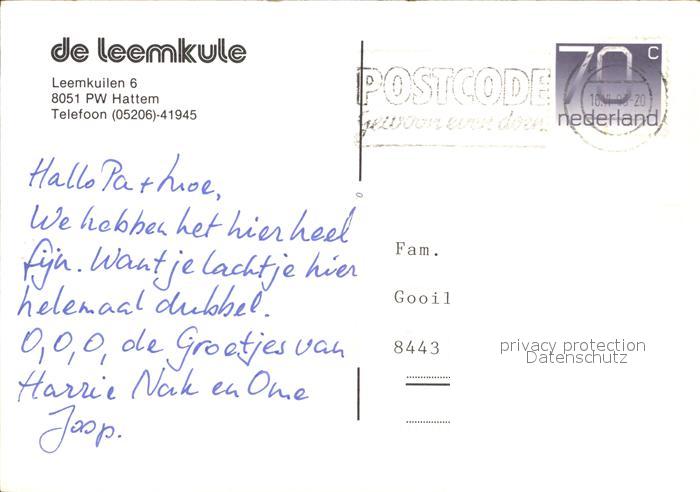 de leemkule
Leemkuilen 6
8051 PW Hattem
Telefoon (05206)-41945
POSTCODE
gewoon even doen
70 c
nederland
Hallo Pa + Moe,
We hebben het hier heel
fijn. Want je lacht je hier
helemaal dubbel.
O, O, O, de Groetjes van
Harrie Nak en Ome
Joop.
Fam.
Gooil
8443
privacy protection
Datenschutz